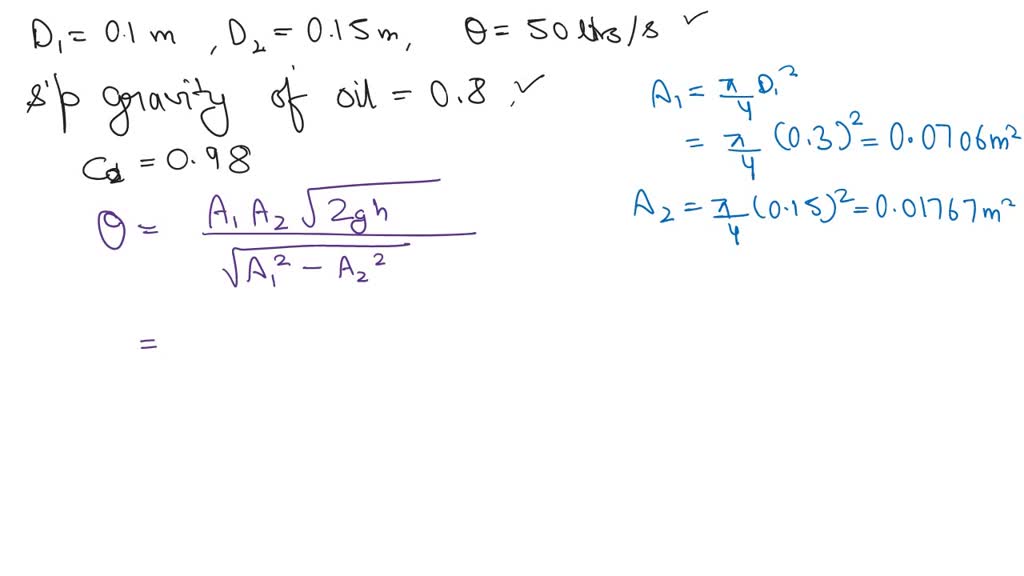 D₁ = 0.1 m , D₂ = 0.15 m, θ = 50 ltrs/s ✓
s/p gravity of oil = 0.8 ✓
Cd = 0.98
θ = A₁ A₂ √2gh / √A₁² − A₂²
=
A₁ = π/4 D₁²
= π/4 (0.3)² = 0.0706 m²
A₂ = π/4 (0.15)² = 0.01767 m²